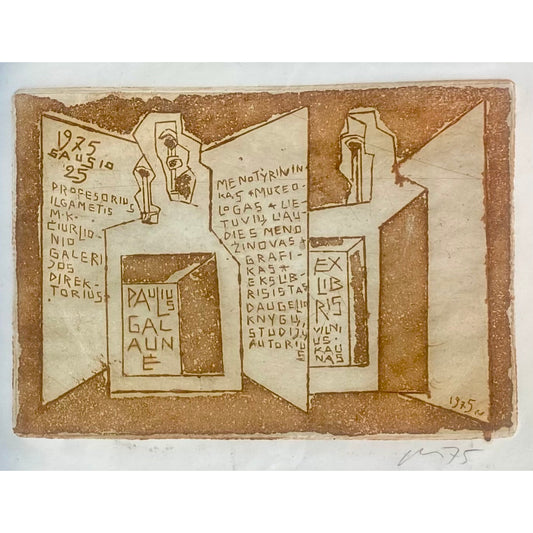 1975
SAUSIO
25
PROCESORIUS
ILGAMETIS
M·K·
ČIURLIO-
NIO
GALERI
JOS
DIREK-
TORIUS+
PAULIUS
GAL
AUN
Ė
MENOTYRININ-
KAS + MUZEO-
LOGAS + LIE-
TUVIŲ LIAU
DIES MENO
ŽINOVAS +
GRAFI-
KAS +
EKSLIB-
RISISTAS
DAUGELIO
KNYGŲ,
STUDIJŲ
AUTORIUS
EX
LIBRIS
VILNI
US-KAU
NAS
1975
75